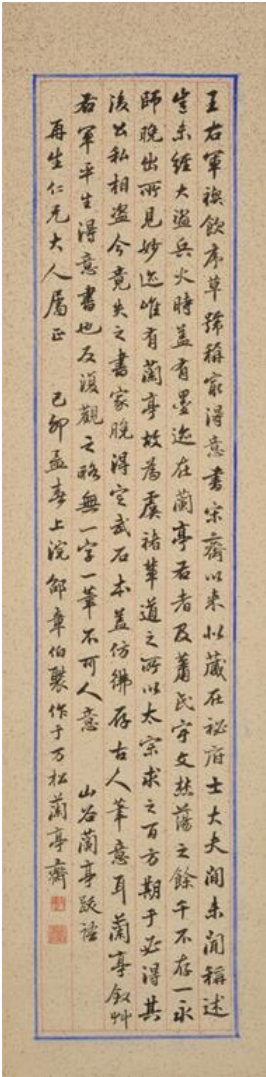 王右軍禊飲序草號稱冣得意書宋齊以來似藏在祕府士大夫間未聞稱述
豈未經大盜兵火時蓋有墨迹在蘭亭右者及蕭氏宇文焚蕩之餘千不存一永
師晚出所見妙迹唯有蘭亭故為虞褚輩道之所以太宗求之百方期于必得其
後公私相盜今竟失之書家晚得定武石本蓋仿彿存古人筆意耳蘭亭敘艸
右軍平生得意書也反復觀之略無一字一筆不可人意 山谷蘭亭跋語
再生仁兄大人屬正 己卯孟春上浣邵章伯褧作于万松蘭亭齋